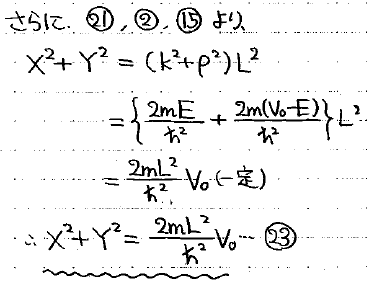 さらに、㉑, ②, ⑮ より、
X²+Y² = (k²+ρ²)L²
= {2mE/ħ² + 2m(V₀-E)/ħ²}L²
= 2mL²/ħ² V₀ (一定)
∴ X²+Y² = 2mL²/ħ² V₀ … ㉓